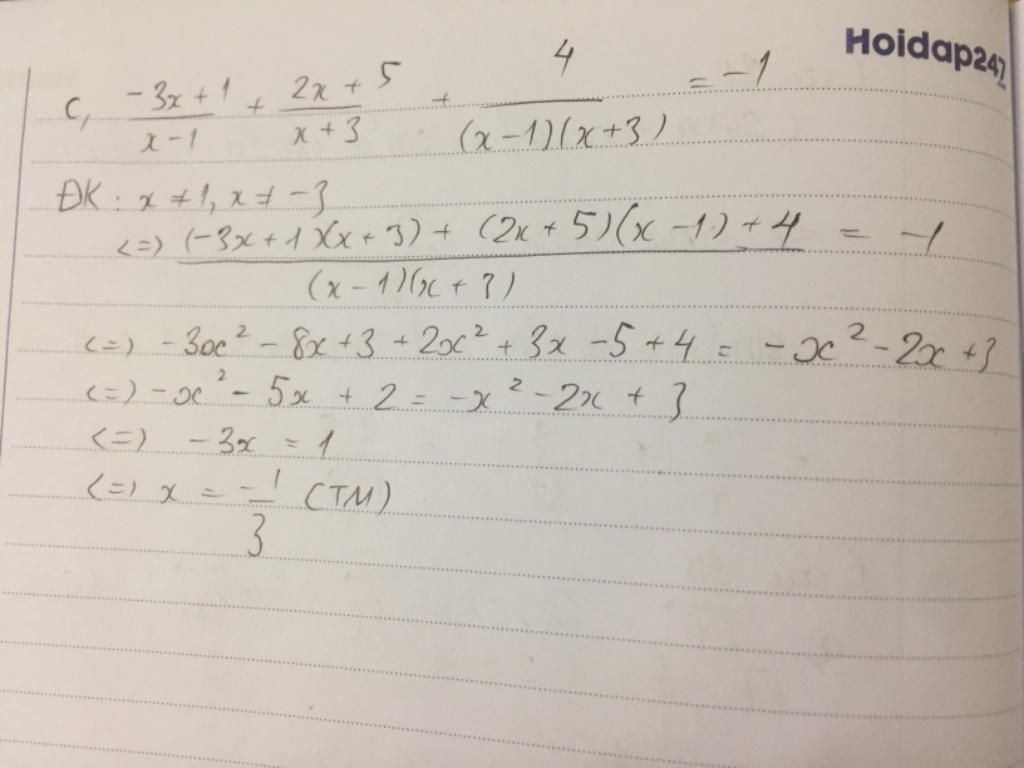 Hoidap247
c, (-3x+1)/(x-1) + (2x+5)/(x+3) + 4/((x-1)(x+3)) = -1
ĐK: x ≠ 1, x ≠ -3
<=> ((-3x+1)(x+3) + (2x+5)(x-1) + 4)/((x-1)(x+3)) = -1
<=> -3x² - 8x + 3 + 2x² + 3x - 5 + 4 = -x² - 2x + 3
<=> -x² - 5x + 2 = -x² - 2x + 3
<=> -3x = 1
<=> x = -1/3 (TM)